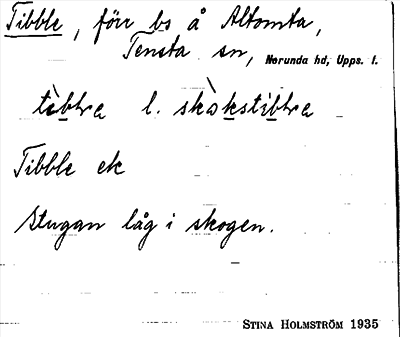 Tibble, förr bs å Altomta,
Tensta sn, Norunda hd, Upps. l.
tìb̲bḷa l. skòkstib̲bḷa
Tibble ek
Stugan låg i skogen.
STINA HOLMSTRÖM 1935